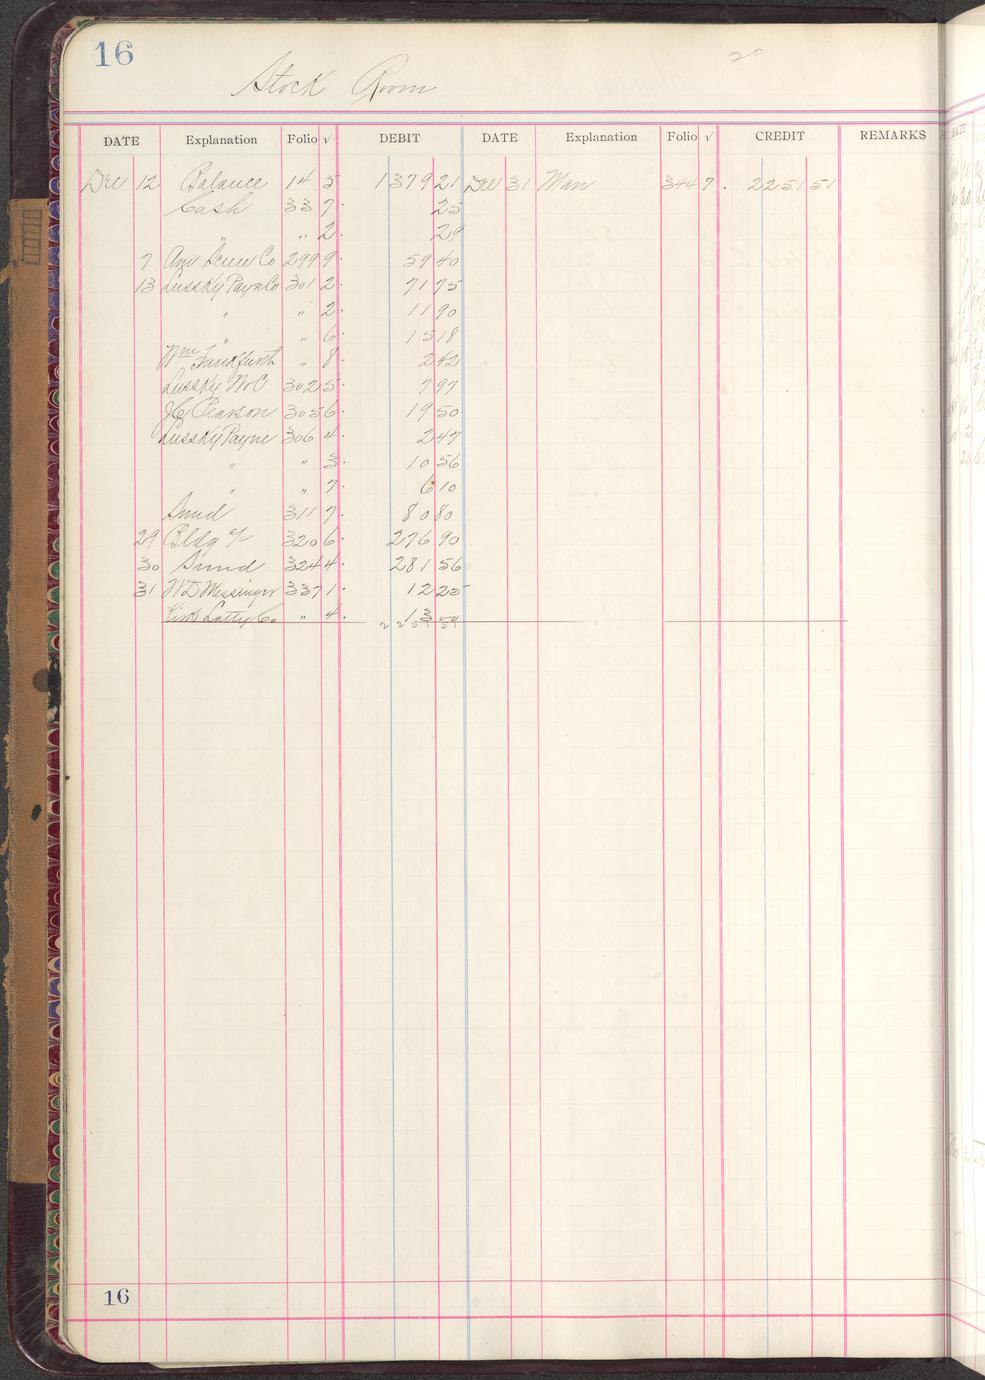 16
20
Stock Room
DATE Explanation Folio √ DEBIT DATE Explanation Folio √ CREDIT REMARKS
Dec 12 Balance 14 5 1379 21 Dec 31 Man 344 7 2251 51
Cash 33 7 25
" " 2 29
7 Am Screw Co 299 9 59 40
13 Lussky Payn Co 301 2 71 75
" " 2 11 90
" " 6 15 18
Wm Frankfurth " 8 2 42
Lussky W&C 302 5 7 97
JG Pearson 305 6 19 50
Lussky Payne 306 4 2 47
" " 3 10 56
" " 7 6 10
Sund 311 7 80 80
29 Bldg a/c 320 6 276 90
30 Sund 324 4 281 56
31 WD Messinger 337 1 12 25
Kirk Latty Co " 4 13 00
2251 51
16